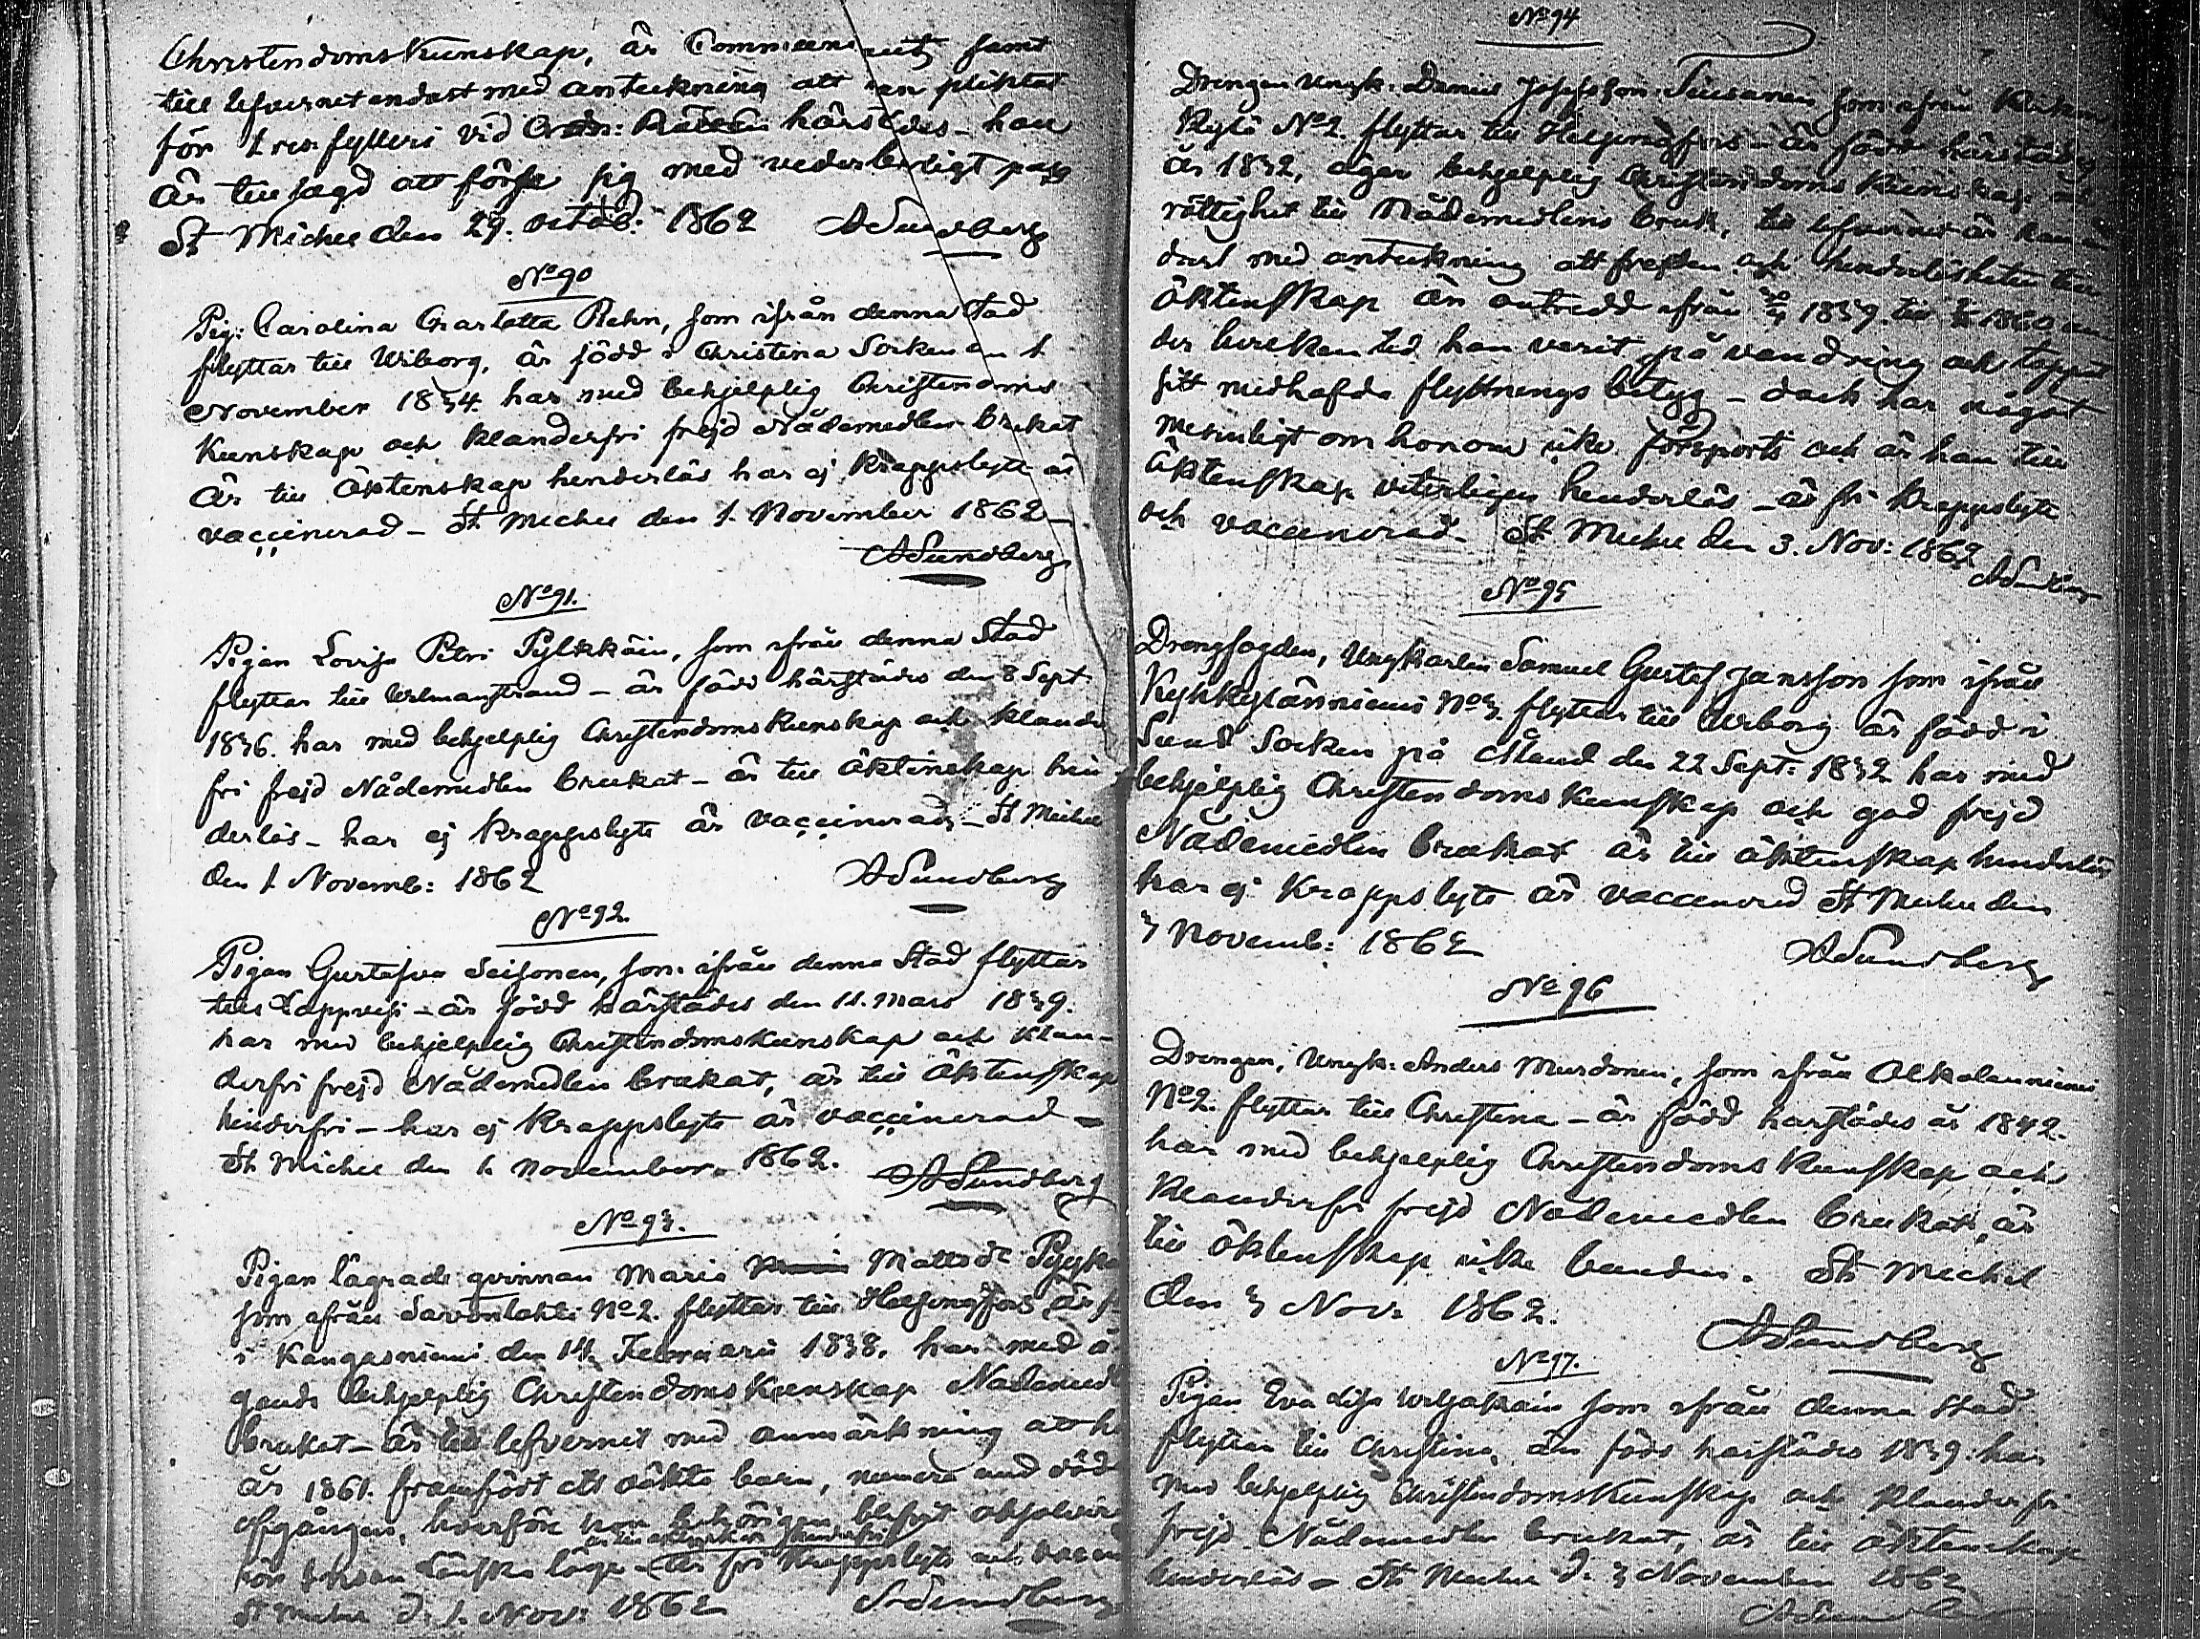 Christendoms Kunskap, är Communicerat, samt
till lefvernet endast med anteckning att han pliktat
för 1 res. fylleri vid härstädes - han
är tillsagd att förse sig med vederbörligt pass
St Michel den 29. octob: 1862 A Sundberg
No 90
Pig: Carolina Charlotta Rehn, som ifrån denna Stad
flyttar till Wiborg, är född i Christina Socken den 1
November 1834. har med behjelplig Christendoms
Kunskap och klanderfri frejd Nådemedlen brukat
är till äktenskap hinderlös har ej kroppslyte är
vaccinerad - St Michel den 1. November 1862 -
A Sundberg
No 91.
Pigan Lovisa Petri Pylkkäin, som ifrån denna Stad
flyttar till Wilmanstrand - är född härstädes den 8 Sept.
1836. har med behjelplig Christendoms Kunskap och klander
fri frejd Nådemedlen brukat - är till äktenskap hin
derlös - har ej kroppslyte är vaccinerad - St Michel
den 1 Novemb: 1862 A Sundberg
No 92.
Pigan Gustafva Seisonen, som ifrån denna Stad flyttar
till Lappvesi - är född härstädes den 11. Mars 1839.
har med behjelplig Christendomskunskap och klan-
derfri frejd Nådemedlen brukat, är till äktenskap
hinderfri - har ej kroppslyte är vaccinerad -
St Michel den 1. November. 1862. A Sundberg
No 93.
Pigan lägrade qvinnan Maria Matts dr
som ifrån Savonlahti No 2. flyttar till Helsingfors är f
i Kangasniemi den 14 Februarii 1838. har med ä
gande behjelplig Christendoms Kunskap Nådemedl
brukat - är till lefvernet med anmärkning att h
år 1861. framfödt ett oäkta barn, numera med död
afgången, hvarför hon behörigen blifvit absolver
är till äktenskap hinderfri
för lönska läge - är fri kroppslyte och vaccin
St Michel d. 1. Nov: 1862 A Sundberg
No 94
Drengen Ungk: Daniel Josefsson Tiusanen som ifrån
Kylä No 2. flyttar till Helsingfors - är född härstädes
år 1832, äger behjelplig Christendoms Kunskap och
rättighet till Nådemedlens bruk, till lefvernet är han en
dast med anteckning att frejden och hinderlösheten till
äktenskap är outredd ifrån 1859. till 1860 un
der hvilken tid han varit på vandring och tappat
sitt medhafda flyttnings betyg - dock har något
menligt om honom icke försports och är han till
äktenskap veterligen hinderlös - är fri kroppslyte
och vaccinerad. St Michel den 3. Nov: 1862 A Sundberg
No 95
Drengfogden, Ungkarlen Samuel Gustaf Jansson som ifrån
No 3. flyttar till Wiborg är född i
Sund Socken på Åland den 22 Sept: 1832 har med
behjelplig Christendoms Kunskap och god frejd
Nådemedlen brukat är till äktenskap hinderlös
har ej kroppslyte är vaccinerad St Michel den
3 Novemb: 1862 A Sundberg
No 96
Drengen, Ungk: Anders Murdonen, som ifrån Olkolanniemi
No 2. flyttar till Christina - är född härstädes år 1842.
har med behjelplig Christendoms Kunskap och
klanderfri frejd Nådemedlen brukat, är
till äktenskap icke bunden. St Michel
den 3 Nov: 1862.
A Sundberg
No 97.
Pigan Eva Lisa Wiljakain som ifrån denna Stad
flyttar till Christina, är född härstädes 1839. har
med behjelplig Christendomskunskap och klanderfri
frejd Nådemedlen brukat, är till äktenskap
hinderlös - St Michel d. 3 November 1862
A Sundberg